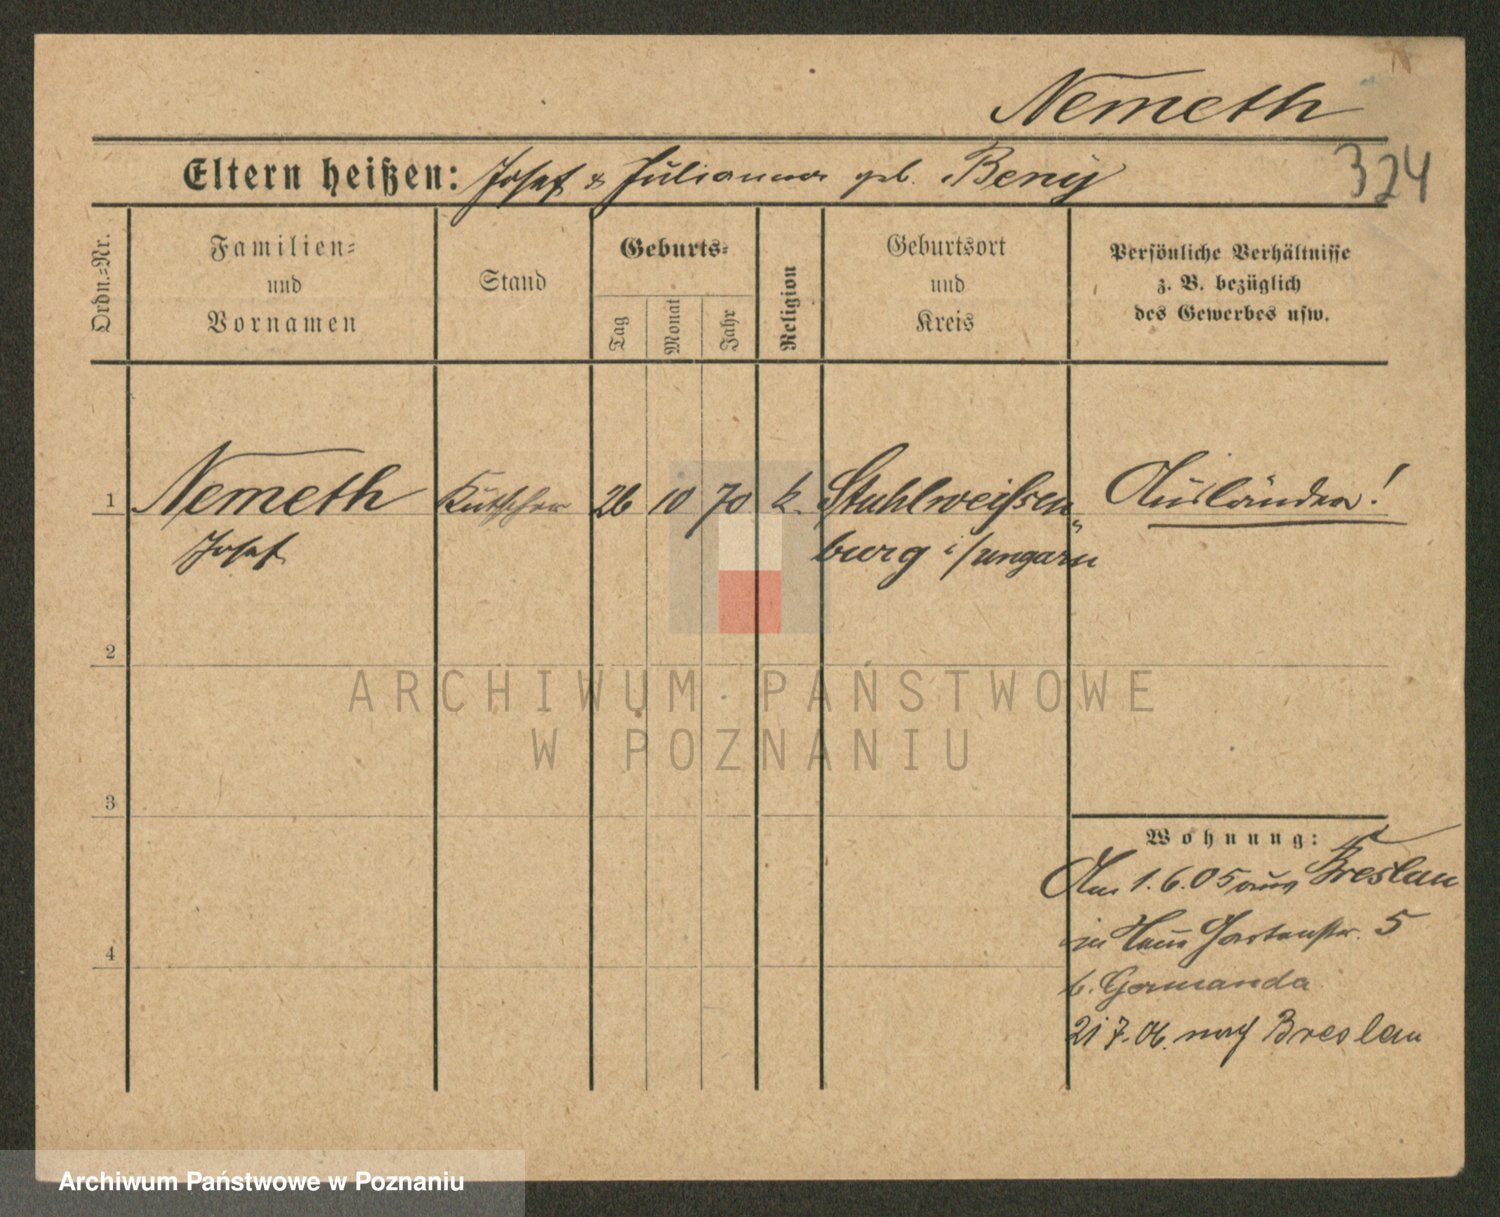 Nemeth
324
Eltern heißen: Josef & Julianna geb. Beny
Ordn.=Nr.
Familien=
und
Vornamen
Stand
Geburts=
Tag
Monat
Jahr
Religion
Geburtsort
und
Kreis
Persönliche Verhältnisse
z. B. bezüglich
des Gewerbes usw.
1 Nemeth Kutscher 26 10 70 k. Stuhlweißen Ausländer!
Josef burg i/Ungarn
2
ARCHIWUM PAŃSTWOWE
W POZNANIU
3
Wohnung:
Am 1.6.05 aus Breslau
in Gartenstr. 5
4
b. Germanda
21 7. 06. nach Breslau
Archiwum Państwowe w Poznaniu